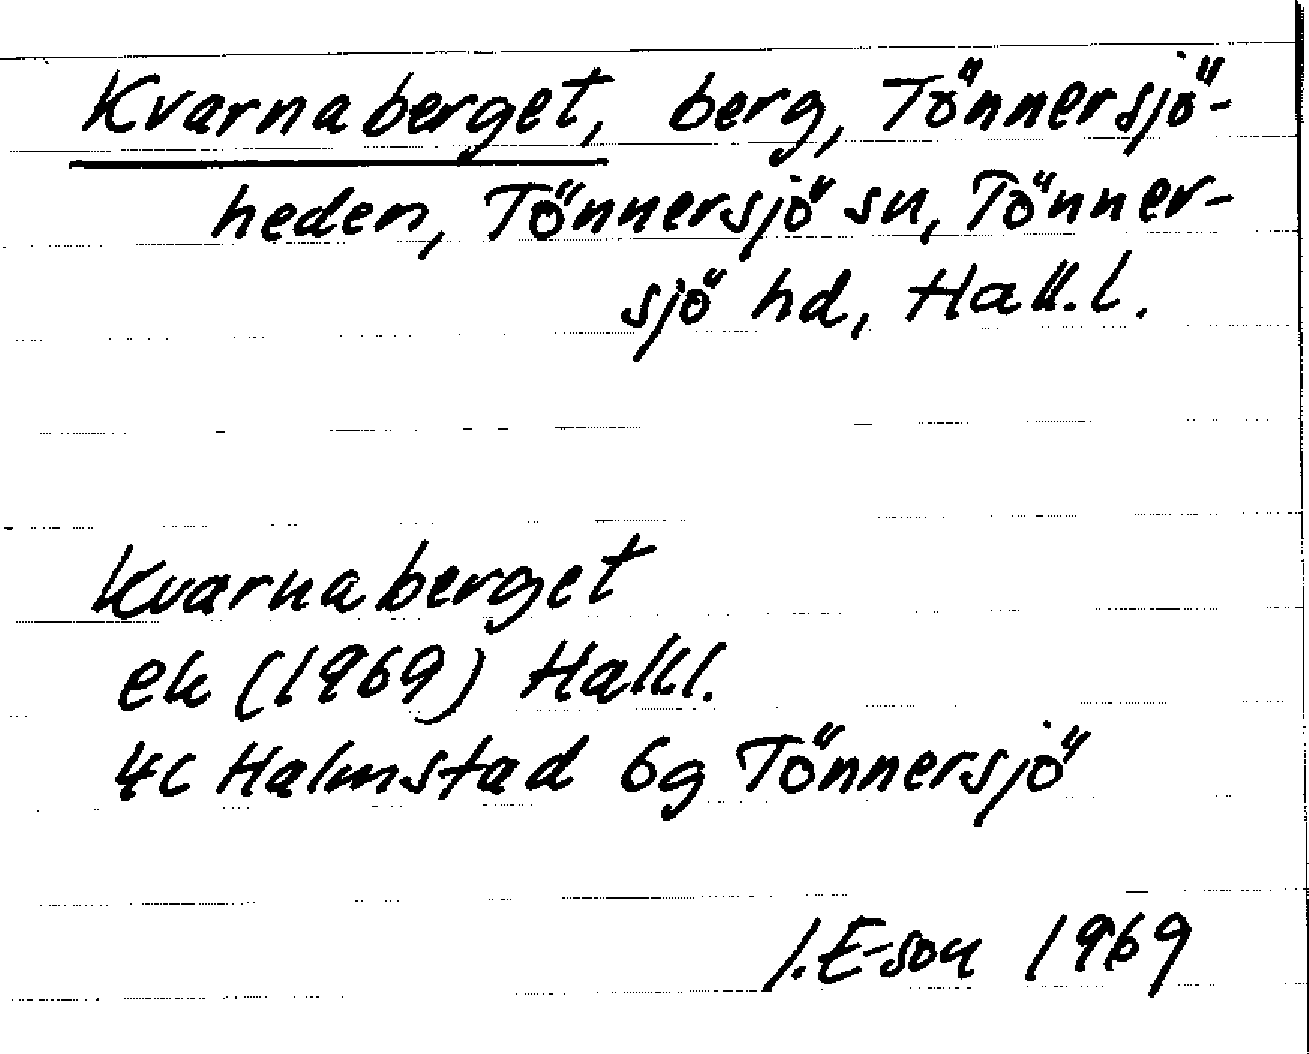 Kvarnaberget, berg, Tönnersjö-
heden, Tönnersjö sn, Tönner-
sjö hd, Hall.l.
Kvarnaberget
ek (1969) Hall.l.
4C Halmstad 6g Tönnersjö
I.E-son 1969